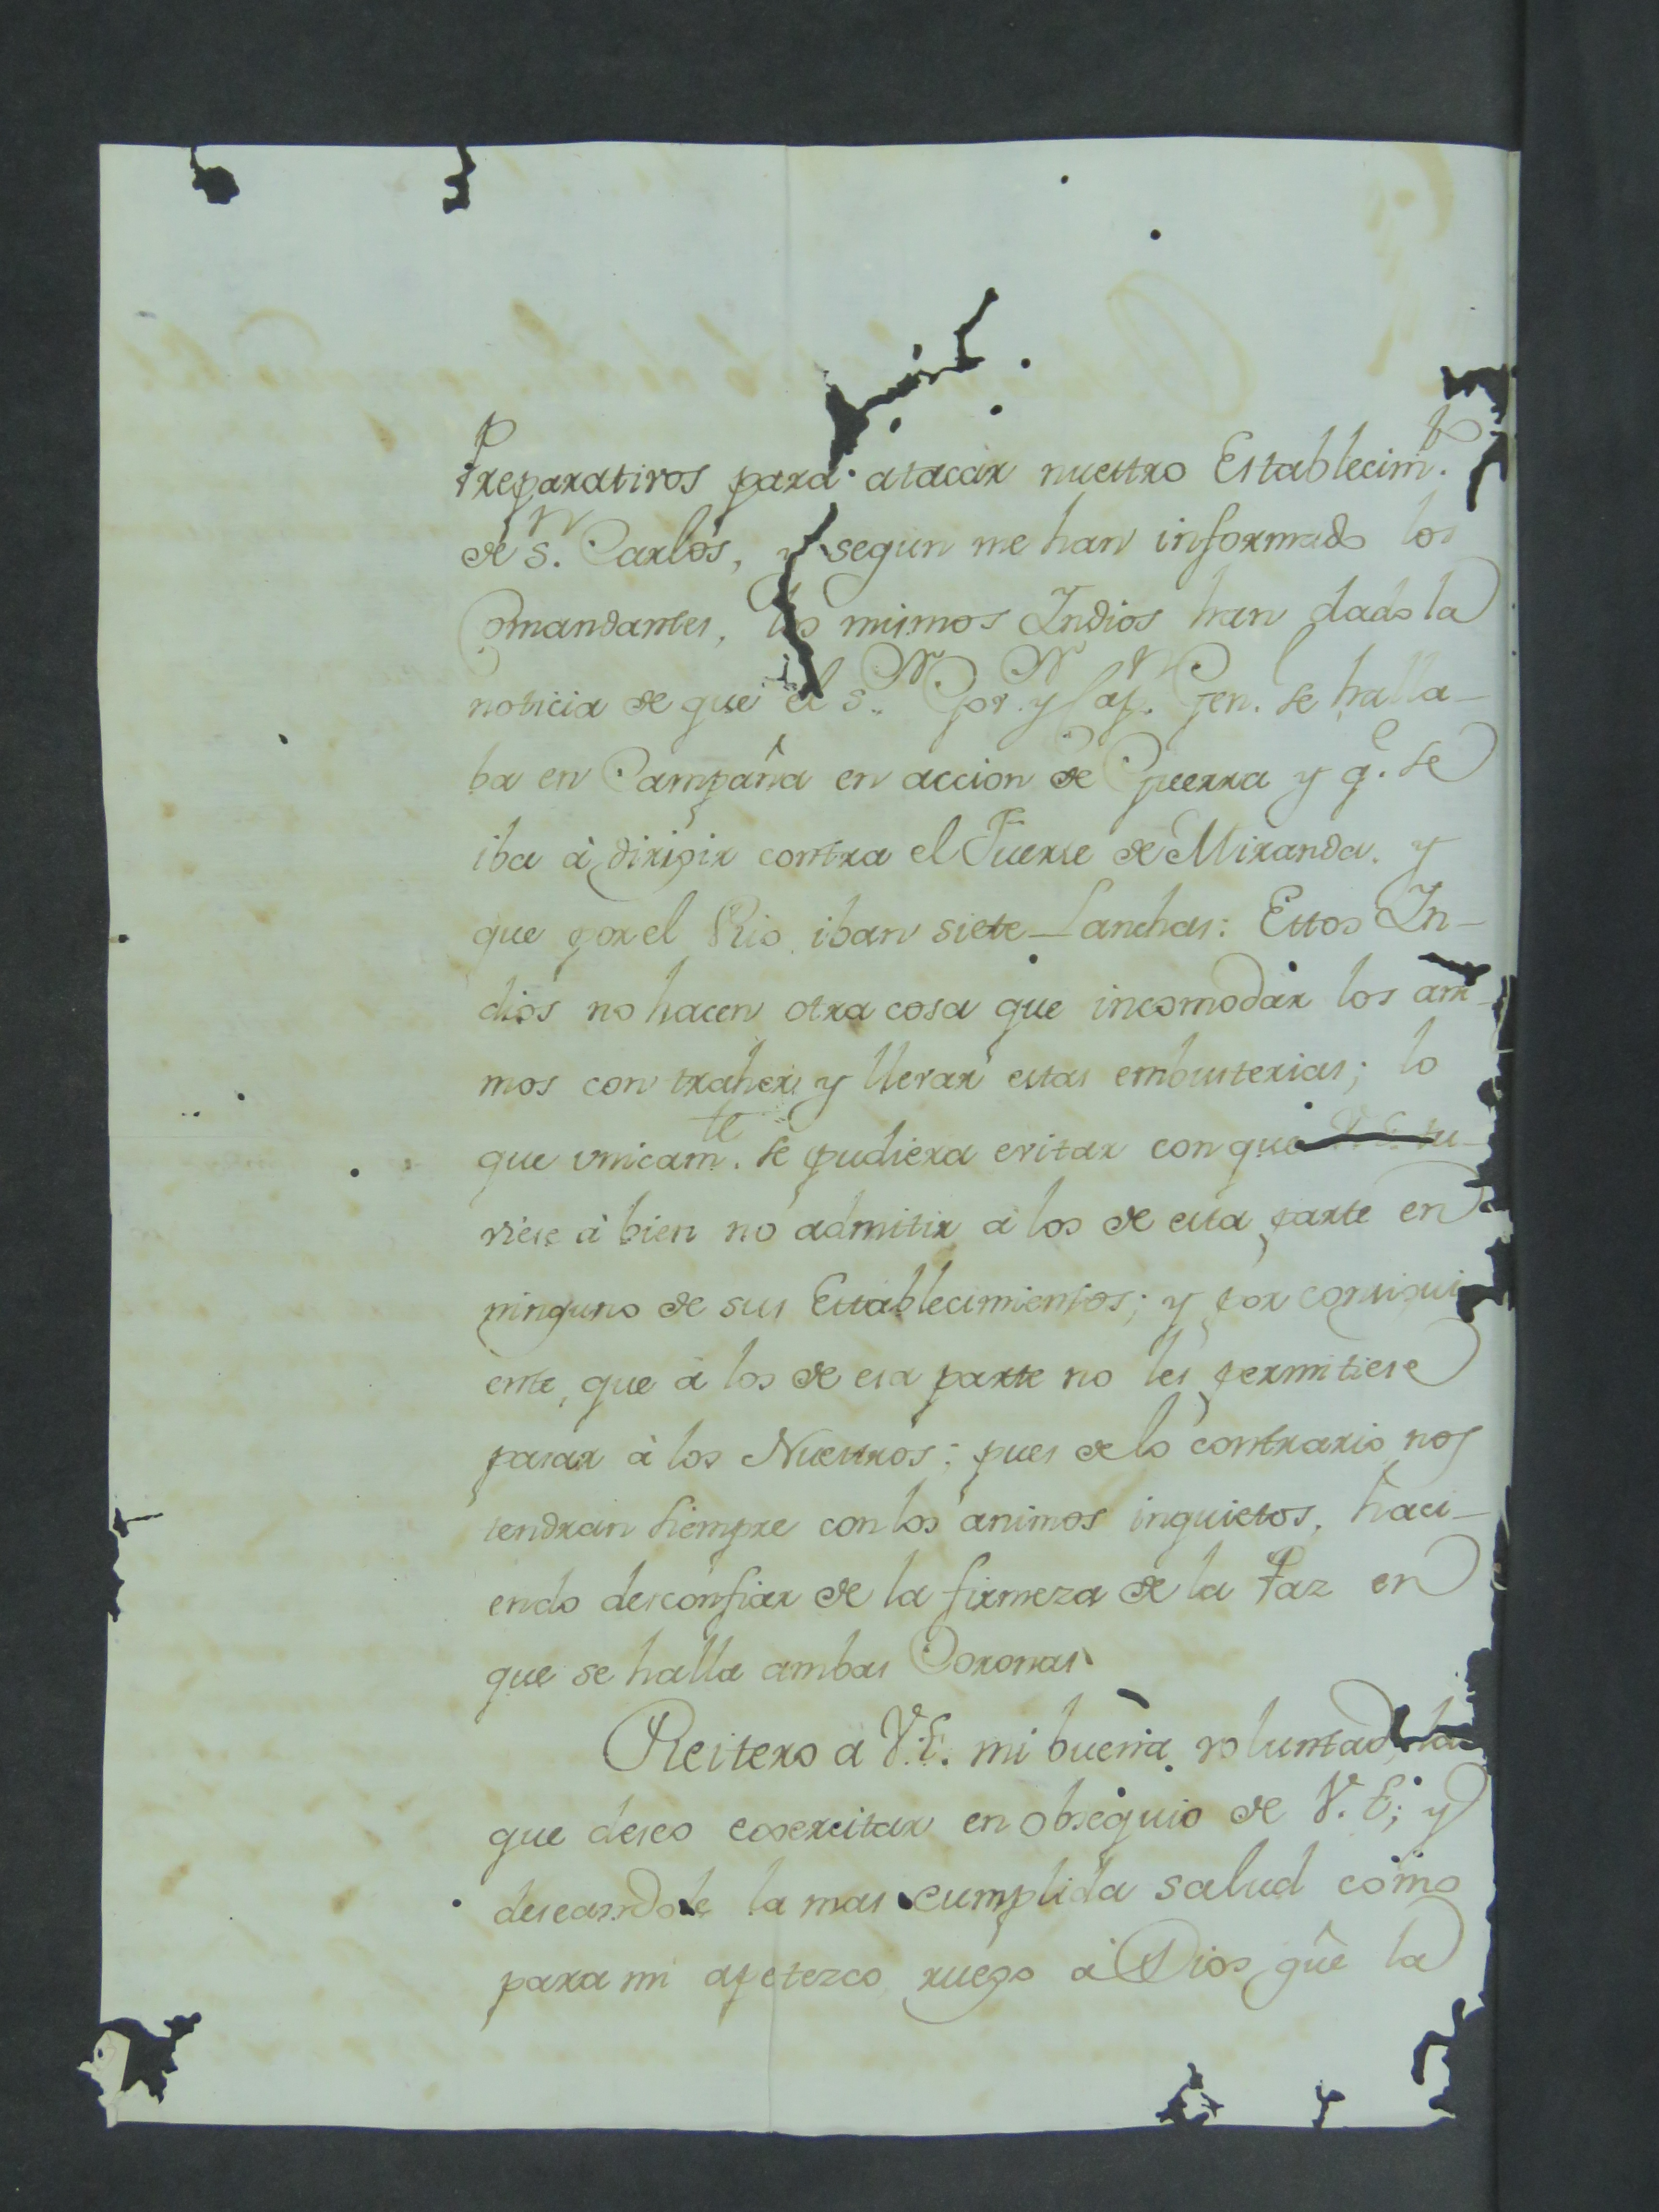 Preparativos para atacar nuestro Establecim.to
de S.n Carlos, y segun me han informado los
Comandantes, los mismos Indios han dado la
noticia de que el S.or Gov.or y Cap.n Gen. se halla-
ba en Campaña en accion de Guerra y q.e se
iba à dirigir contra el Fuerte de Miranda. y
que por el Rio iban siete Lanchas: Estos In-
dios no hacen otra cosa que incomodar los ani-
mos con traher y llevar estas embusterias; lo
que vnicam.te se pudiera evitar con que V. E. tu-
viese à bien no admitir à los de esta parte en
ninguno de sus Establecimientos; y por consigui
ente, que à los de esa parte no les permitiese
pasar à los Nuestros; pues de lo contrario nos
tendran siempre con los animos inquietos, haci-
endo desconfiar de la firmeza de la Paz en
que se halla ambas Coronas
Reitero a V.E. mi buena voluntad, la
que deseo exercitar en obsequio de V. E; y
deseandole la mas cumplida salud como
para mi apetezco ruego à Dios que la